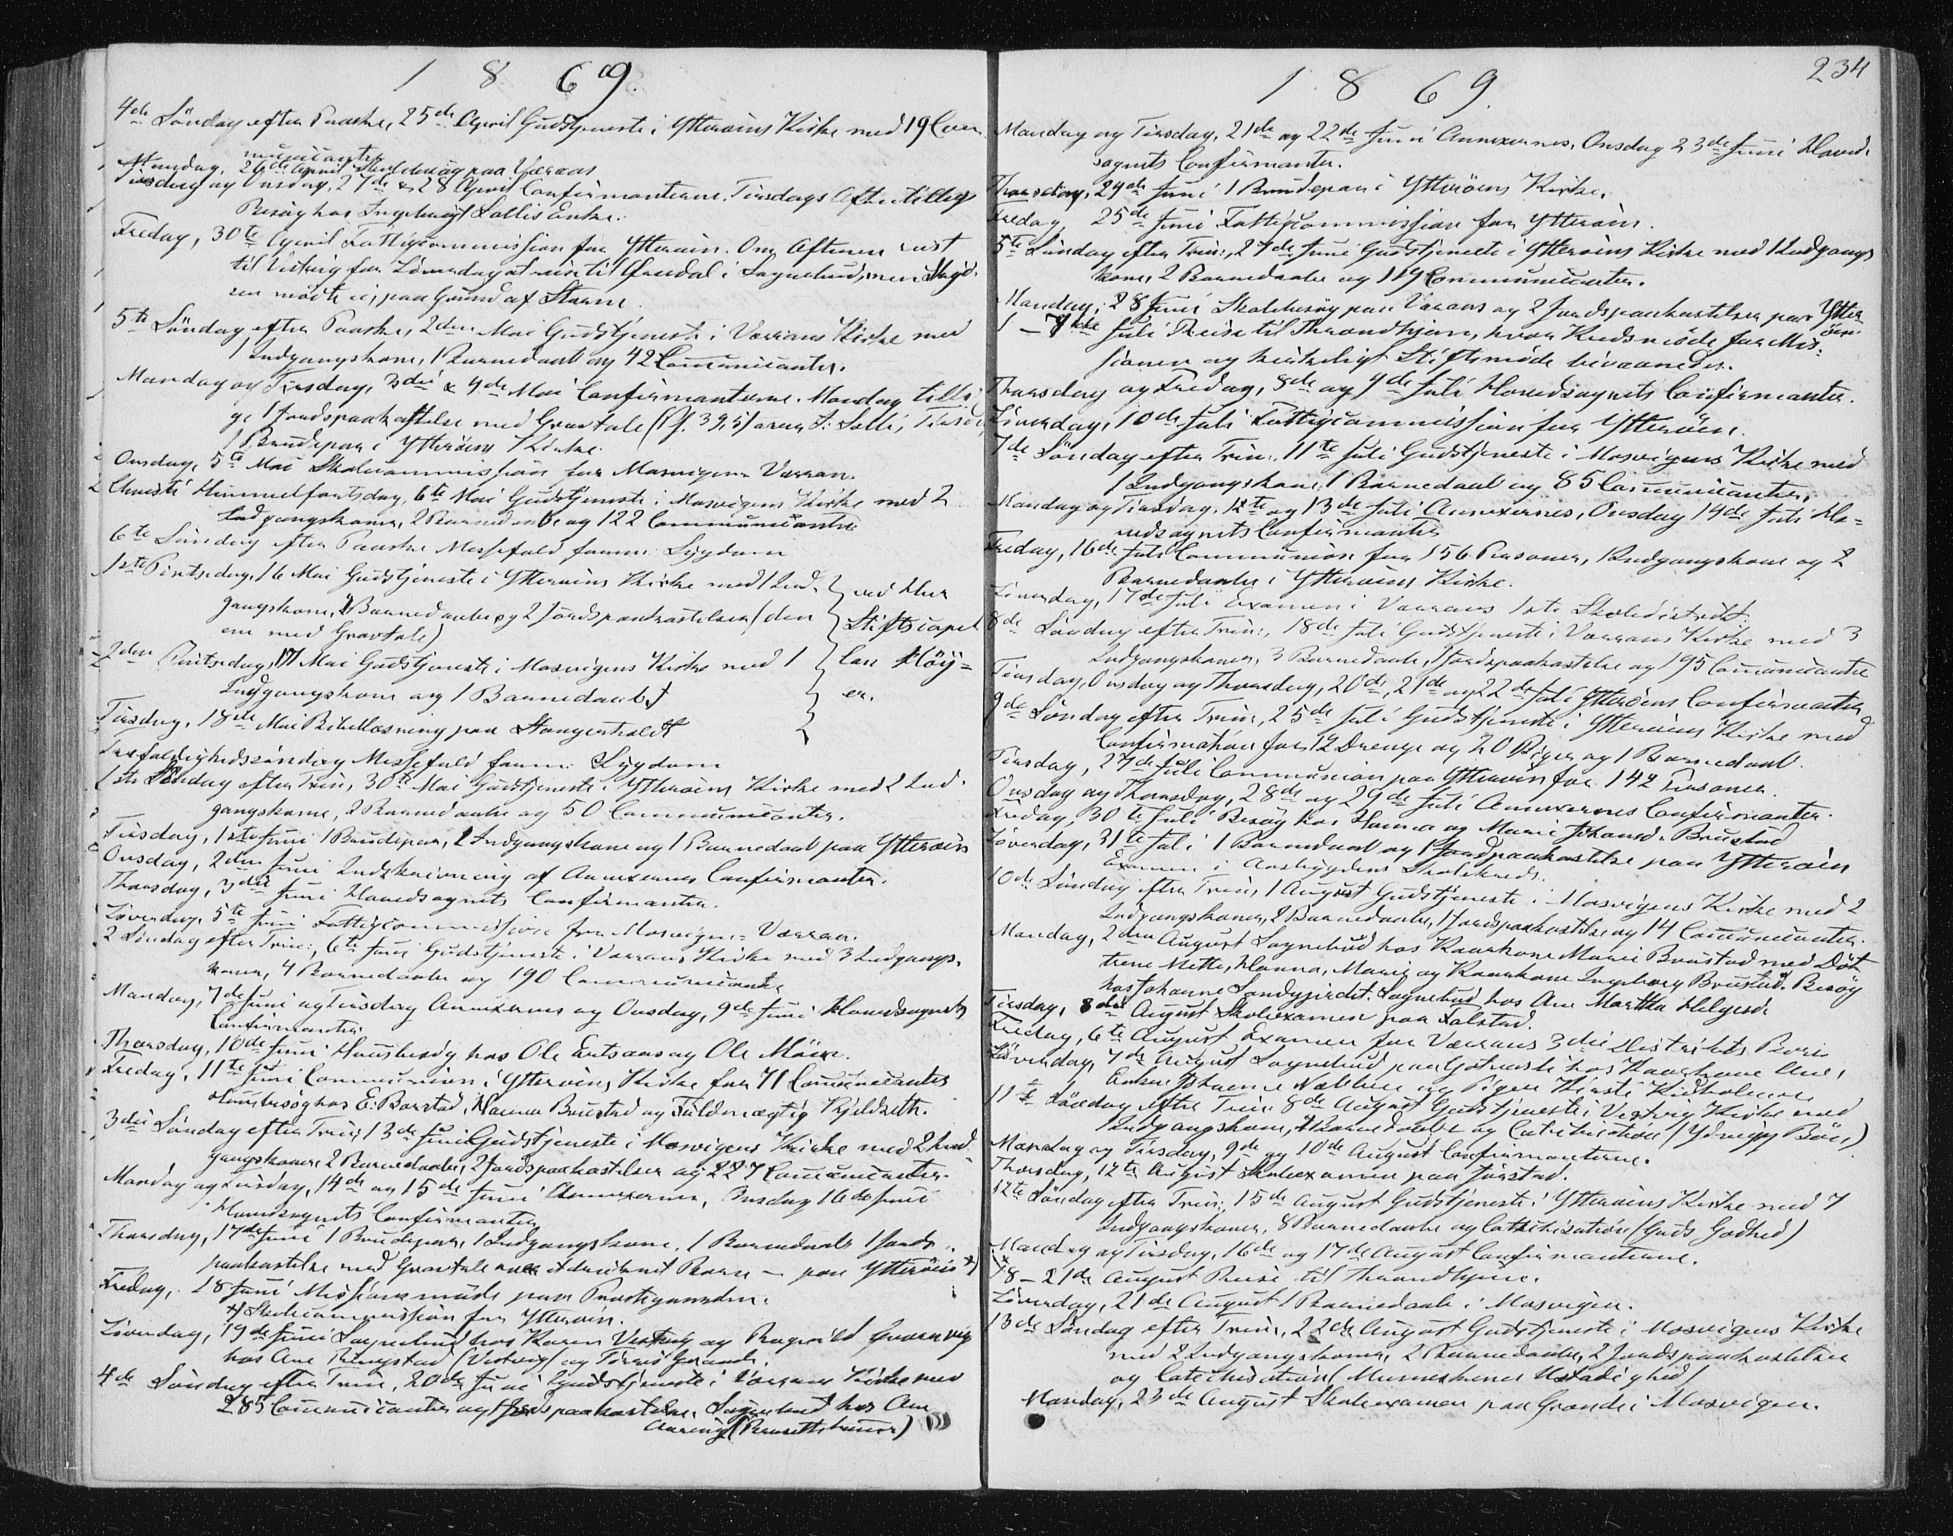 1869.
4de Söndag efter Paaske, 25de April Gudstjeneste i Ytteröens Kirke med 19 Com
municanter
Mandag, 26de April Skolebesög paa Værran
Tirsdag og Onsdag, 27de & 28 April Confirmanterne. Tirsdags Aften tillige
Besög hos Ingeborg Sallis Enke.
Freday, 30te April Fattigcommission for Ytteröen. Om Aftenen
til Vistvig for Löverdag at reise til i Sognebud, men
ren mödte ei, paa Grund af Storm.
5te Söndag efter Paaske, 2den Mai Gudstjeneste i Værrans Kirke med
1 Indgangskone, 1 Barnedaab og 42 Communicanter.
Mandag og Tirsdag, 3die & 4de Mai Confirmanterne. Mandag tilli-
ge 1 Jordspaakastelse med Gravtale (Ps. 39,5) over Salli, Tirsdag
1 Brudepar i Ytteröens Kirke.
Onsdag, 5te Mai Skolecommission for Mosvigen-Værran.
Christi Himmelfartsdag, 6te Mai Gudstjeneste i Mosvigens Kirke med 2
Indgangskoner, 2 Barnedaabe og 122 Communicanter
6te Söndag efter Paaske Messefald formed. Sygdom
1ste Pintsedag, 16 Mai Gudstjeneste i Ytteröens Kirke med 1 Ind-
gangskone, 2 Barnedaabe og 2 Jordspaakastelser (den
ene med Gravtale)
ved Hr
Stiftscapel
lan Höy-
er.
2den Pintsedag, 17 Mai Gudstjeneste i Mosvigens Kirke med 1
Indgangskone og 1 Barnedaab
Tirsdag, 18de Mai Bibellæsning paa Stangerholdt
Trefoldighedssöndag Messefald formed. Sygdom
1ste Söndag efter Trin., 30te Mai Gudstjeneste i Ytteröens Kirke med 2 Ind-
gangskoner, 2 Barnedaabe og 50 Communicanter.
Tirsdag, 1ste Juni 1 Brudepar, 1 Indgangskone og 1 Barnedaab paa Ytteröen
Onsdag, 2den Juni Indskrivning af Annexernes Confirmanter.
Thorsdag, 3die Juni Hovedsognets Confirmanter.
Löverdag, 5te Juni Fattigcommission for Mosvigen-Værran.
2 Söndag efter Trin., 6te Juni Gudstjeneste i Værrans Kirke med 3 Indgangs-
koner, 4 Barnedaabe og 190 Communicanter
Mandag, 7de Juni og Tirsdag Annexernes og Onsdag, 9de Juni Hovedsognets
Confirmanter.
Thorsdag, 10de Juni Huusbesög hos Ole og Ole
Fredag, 11te Juni Communion i Ytteröens Kirke for 71 Communicanter
Huusbesög hos E. Barstad, Hanna Brustad og Fuldmægtig
3die Söndag efter Trin., 13de Juni Gudstjeneste i Mosvigens Kirke med 2 Ind-
gangskoner, 2 Barnedaabe, 2 Jordspaakastelser og 227 Communicanter.
Mandag og Tirsdag, 14de og 15de Juni Annexernes, Onsdag 16de Juni
Hovedsognets Confirmanter
Thorsdag, 17de Juni 1 Brudepar, 1 Indgangskone, 1 Barnedaab, 1 Jords-
paakastelse med Gravtale over et Barn - paa Ytteröen
Fredag, 18 Juni Missionsmöde paa Præstegaarden.
Skolecommission for Ytteröen.
Löverdag, 19de Juni Sognebud hos Karen Vestvig og Ragnild
hos Ane Ringstad (Vestvig) og
4de Söndag efter Trin., 20de Juni Gudstjeneste i Værrans Kirke med
285 Communicanter og 1 Jordspaakastelse. Sognebud hos Ane
1869.
234
Mandag og Tirsdag, 21de og 22de Juni Annexernes, Onsdag 23de Juni Hoved-
sognets Confirmanter.
Thorsdag, 24de Juni 1 Brudepar i Ytteröens Kirke.
Fredag, 25de Juni Fattigcommission for Ytteröen.
5te Söndag efter Trin., 27de Juni Gudstjeneste i Ytteröens Kirke med 1 Indgangs
kone, 2 Barnedaabe og 119 Communicanter.
Mandag, 28 Juni Skolebesög paa Værran og 2 Jordspaakastelser paa Ytter
öen.
1 - 7de Juli Reise til Throndhjem, hvor Kredsmöde for Mis-
sionen og kirkeligt Stiftsmöde bivaanedes.
Thorsdag og Fredag, 8de og 9de Juli Hovedsognets Confirmanter.
Löverdag, 10de Juli Fattigcommission for Ytteröen.
7de Söndag efter Trin., 11te Juli Gudstjeneste i Mosvigens Kirke med
1 Indgangskone, 1 Barnedaab og 85 Communicanter.
Mandag og Tirsdag, 12te og 13de Juli Annexernes, Onsdag 14de Juli Ho-
vedsognets Confirmanter
Fredag, 16de Juli Communion for 156 Personer, 1 Indgangskone og 2
Barnedaabe i Ytteröens Kirke.
Löverdag, 17de Juli Examen i Værrans 1ste Skoledistrikt.
8de Söndag efter Trin., 18de Juli Gudstjeneste i Værrans Kirke med 3
Indgangskoner, 3 Barnedaabe, 1 Jordspaakastelse og 195 Communicanter
Tirsdag, Onsdag og Thorsdag, 20de, 21de og 22de Juli Ytteröens Confirmanter
9de Söndag efter Trin., 25de Juli Gudstjeneste i Ytteröens Kirke med
Confirmation for 12 Drenge og 20 Piger og 1 Barnedaab.
Tirsdag, 27de Juli Communion paa Ytteröen for 142 Personer.
Onsdag og Thorsdag, 28de og 29de Juli Annexernes Confirmanter.
Fredag, 30te Juli Besög hos Hanna og Marie Johansd. Brustad
Löverdag, 31te Juli 1 Barnedaab og 1 Jordspaakastelse paa Ytteröen
Examen i Skolekreds.
10de Söndag efter Trin., 1 August Gudstjeneste i Mosvigens Kirke med 2
Indgangskoner, 2 Barnedaabe, 1 Jordspaakastelse og 14 Communicanter.
Mandag, 2den August Sognebud hos Kaarkone Marie Brustad med Döt
trene Mette, Hanna, Marie og Kaarkone Ingeborg Brustad. Besög
hos Johanna Sognebud hos Ane Martha Helgesd.
Tirsdag, 3die August Skoleexamen paa Falstad.
Fredag, 6te August Examen for Værrans 3die Distrikts
Löverdag, 7de August Sognebud paa hos Kaarkone Ane,
Enken Johanna og Pigen
11te Söndag efter Trin. 8de August Gudstjeneste i Vestvig Kirke med
1 Indgangskone, Barnedaabe og Catechisation
Mandag og Tirsdag, 9de og 10de August Confirmanterne.
Thorsdag, 12te August Skoleexamen paa Jörstad.
12te Söndag efter Trin., 15de August Gudstjeneste i Ytteröens Kirke med 7
Indgangskoner, 8 Barnedaabe og Catechisation (Guds Godhed)
Mandag og Tirsdag, 16de og 17de August Confirmanterne.
18 - 21de August Reise til Throndhjem.
Löverdag, 21de August 1 Barnedaab i Mosvigen.
13de Söndag efter Trin., 22de August Gudstjeneste i Mosvigens Kirke
med 2 Indgangskoner, 2 Barnedaabe, 2 Jordspaakastelser
og Catechisation (Menneskenes Ustadighed)
Mandag, 23de August Skoleexamen paa Grande i Mosvigen.